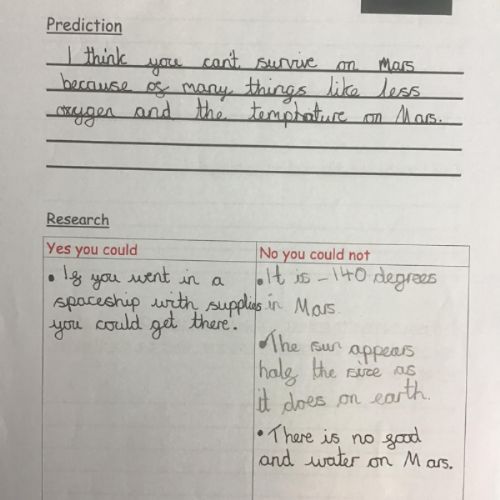 Prediction
I think you can't survive on Mars
because of many things like less
oxygen and the temphature on Mars.
Research
Yes you could
No you could not
• If you went in a
spaceship with supplies
you could get there.
• It is -140 degrees
in Mars.
• The sun appears
half the size as
it does on earth.
• There is no food
and water on Mars.